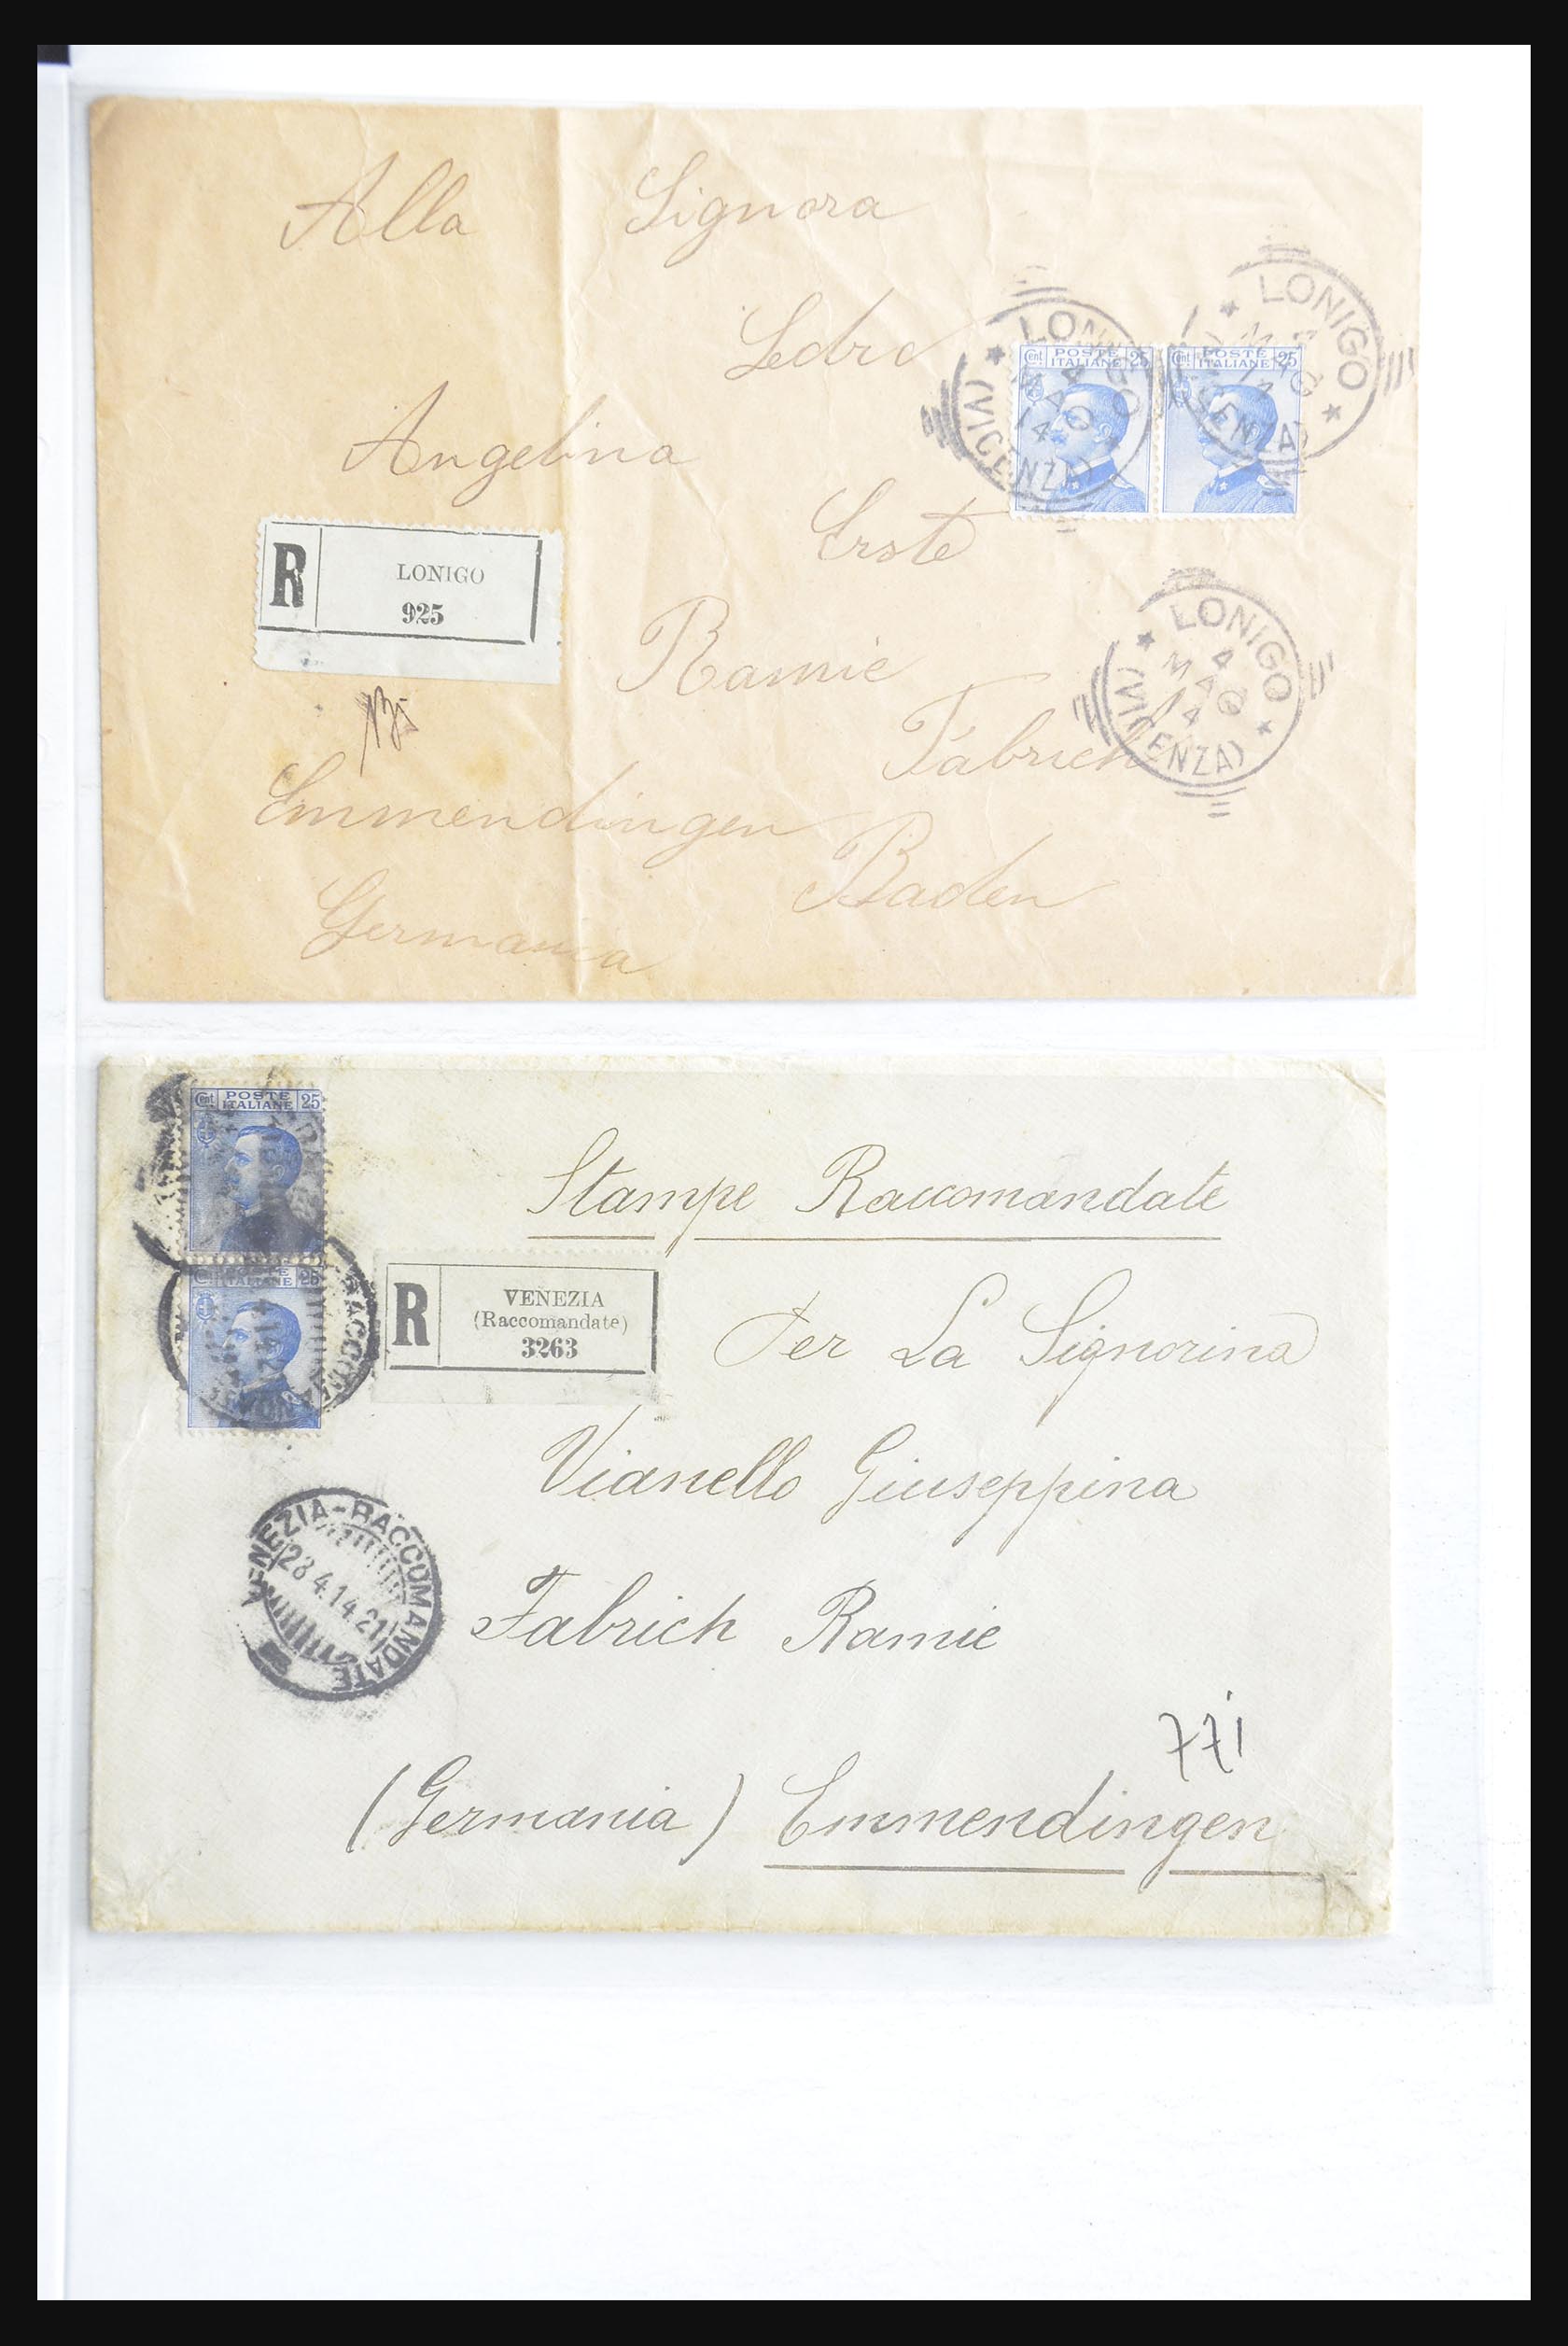 Alla Signora
Ledro
Angelina
Erste
Ramie
Fabrich
Emmendingen
Baden
Germania
R
LONIGO
925
Cent. POSTE ITALIANE 25
Cent. POSTE ITALIANE 25
LONIGO (VICENZA)
4 MAG 14
LONIGO (VICENZA)
MAG 14
LONIGO (VICENZA)
4 MAG 14
Cent. POSTE ITALIANE 25
Cent. POSTE ITALIANE 25
Stampe Raccomandate
R
VENEZIA
(Raccomandate)
3263
Per La Signorina
Vianello Giuseppina
Fabrich Ramie
VENEZIA-RACCOMANDATE
28 4.14 21
771
(Germania) Emmendingen